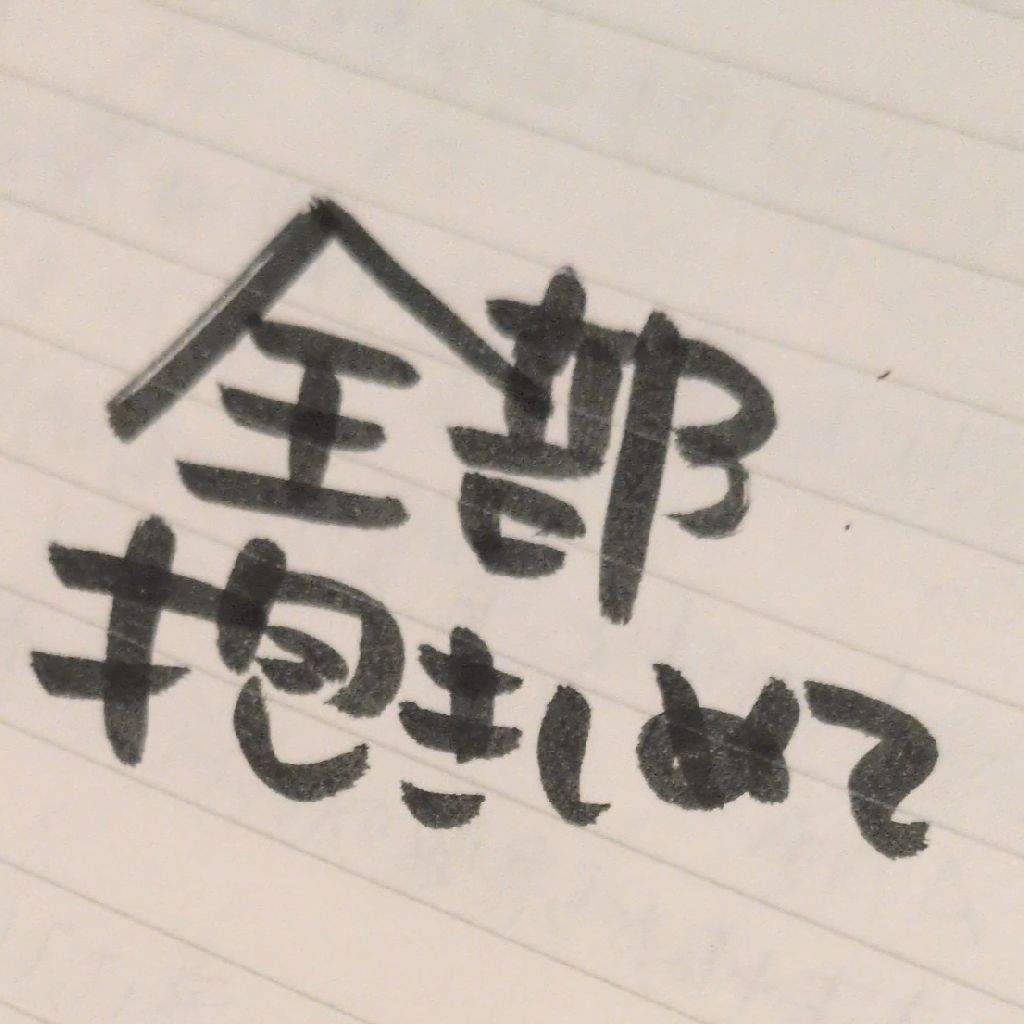 全部
抱きしめて